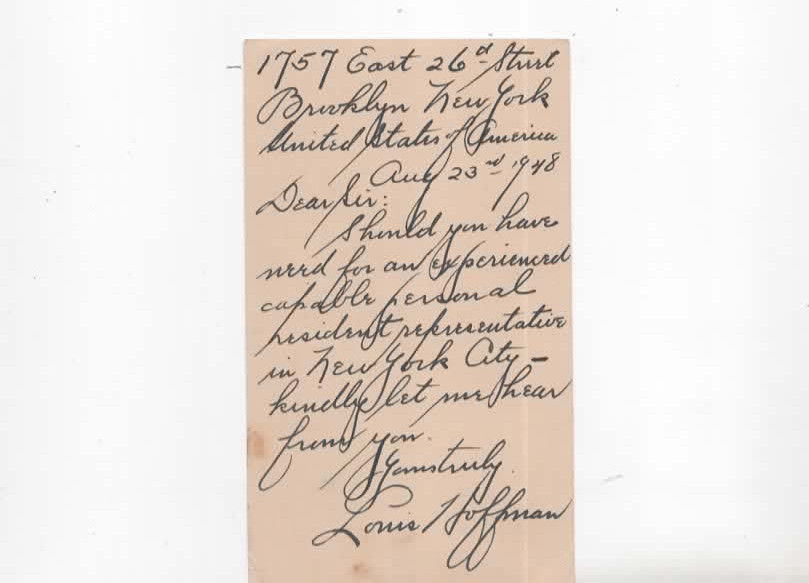 1757 East 26th Street
Brooklyn New York
United States of America
Aug 23rd 1948
Dear Sir:
Should you have
need for an experienced
capable personal
resident representative
in New York City -
kindly let me hear
from you.
Yours truly
Louis Hoffman